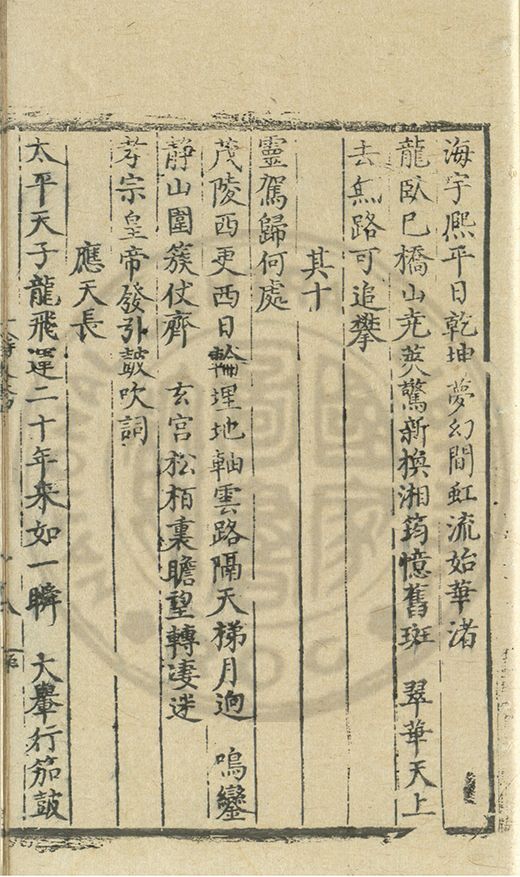 海宇熈平日乾坤夢幻間虹流始華渚
龍臥已橋山尭蓂驚新換湘筠憶舊斑 翠華天上
去無路可追攀
其十
靈駕歸何處
茂陵西更西日輪埋地軸雲路隔天梯月逈 鳴鑾
静山圍簇仗齊 玄宫松栢裏瞻望轉凄迷
孝宗皇帝發引鼓吹詞
應天長
太平天子龍飛運二十年来如一瞬 大轝行笳鼓